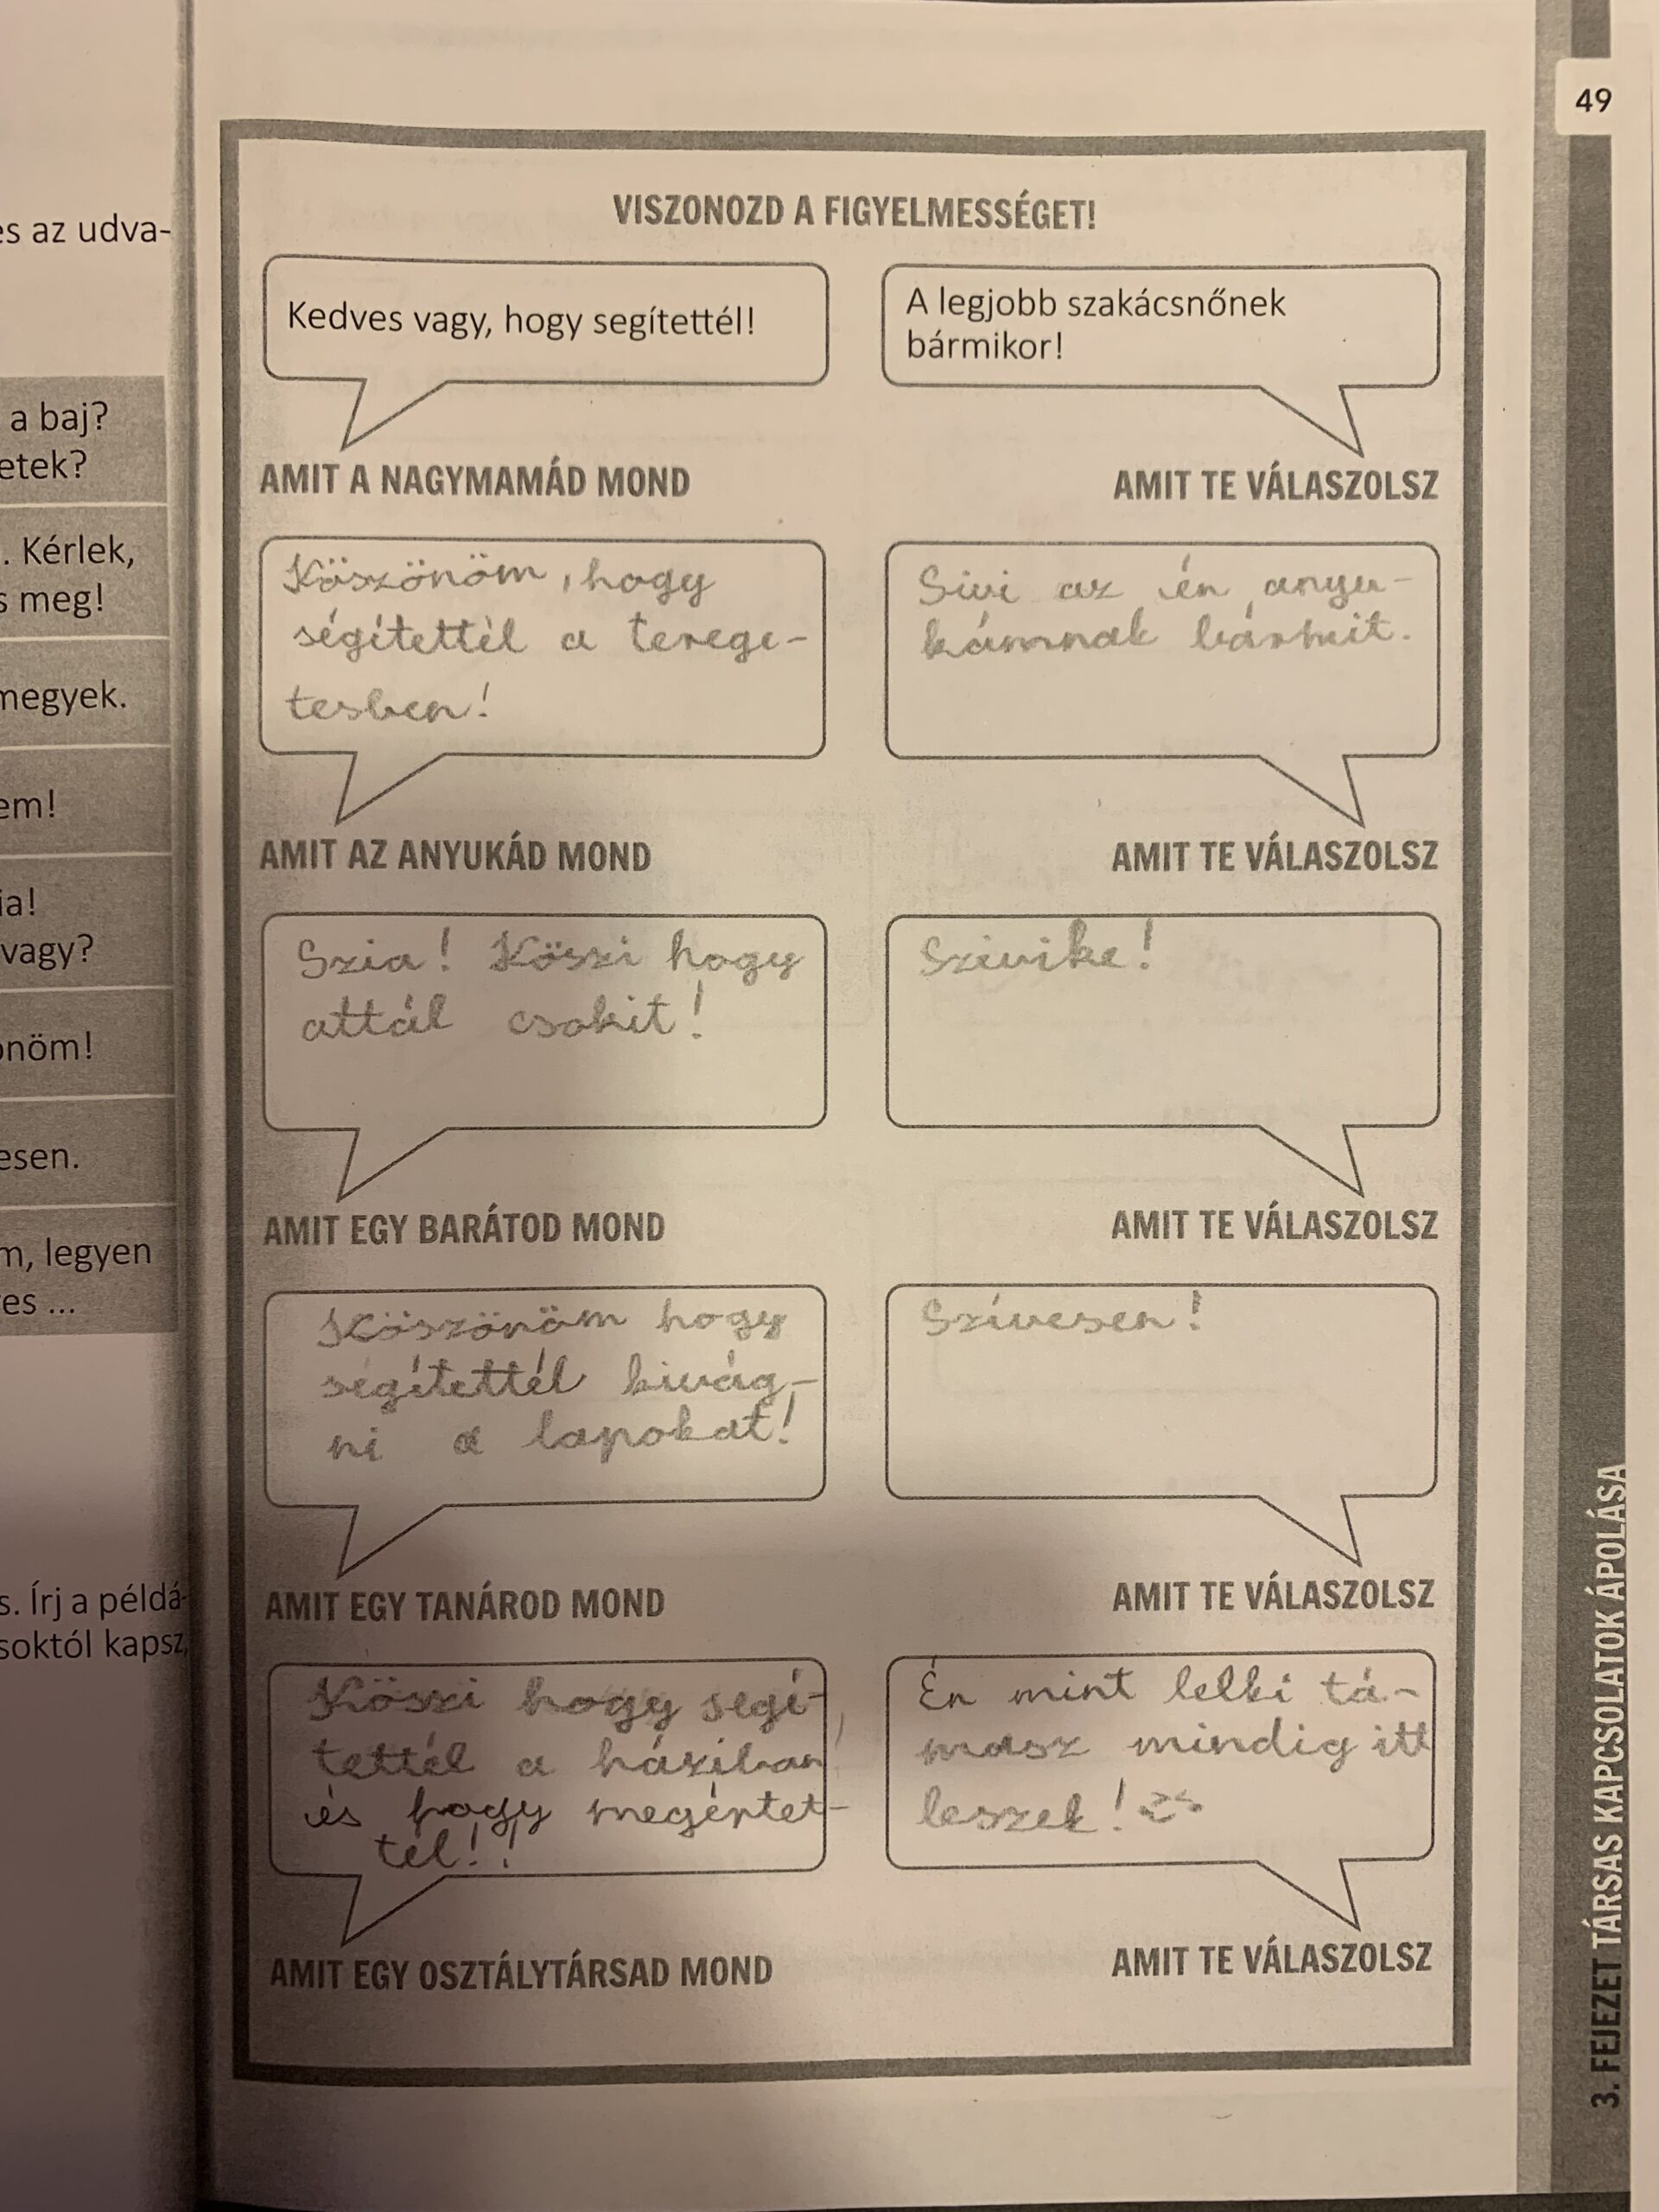 49
es az udva-
a baj?
etek?
. Kérlek,
s meg!
megyek.
em!
ia!
vagy?
önöm!
esen.
m, legyen
es ...
s. Írj a példá-
soktól kapsz,
VISZONOZD A FIGYELMESSÉGET!
Kedves vagy, hogy segítettél!
A legjobb szakácsnőnek
bármikor!
AMIT A NAGYMAMÁD MOND
AMIT TE VÁLASZOLSZ
Köszönöm, hogy
ségítettél a terege-
tesben!
Sivi az én anyu-
kámnak bármit.
AMIT AZ ANYUKÁD MOND
AMIT TE VÁLASZOLSZ
Szia! Köszi hogy
attál csokit!
Szivike!
AMIT EGY BARÁTOD MOND
AMIT TE VÁLASZOLSZ
Köszönöm hogy
ségítettél kivág-
ni a lapokat!
Szívesen!
AMIT EGY TANÁROD MOND
AMIT TE VÁLASZOLSZ
Köszi hogy segí-
tettél a háziban,
és hogy megértet-
tél!!
Én mint lelki tá-
masz mindig itt
leszek!
AMIT EGY OSZTÁLYTÁRSAD MOND
AMIT TE VÁLASZOLSZ
3. FEJEZET TÁRSAS KAPCSOLATOK ÁPOLÁSA